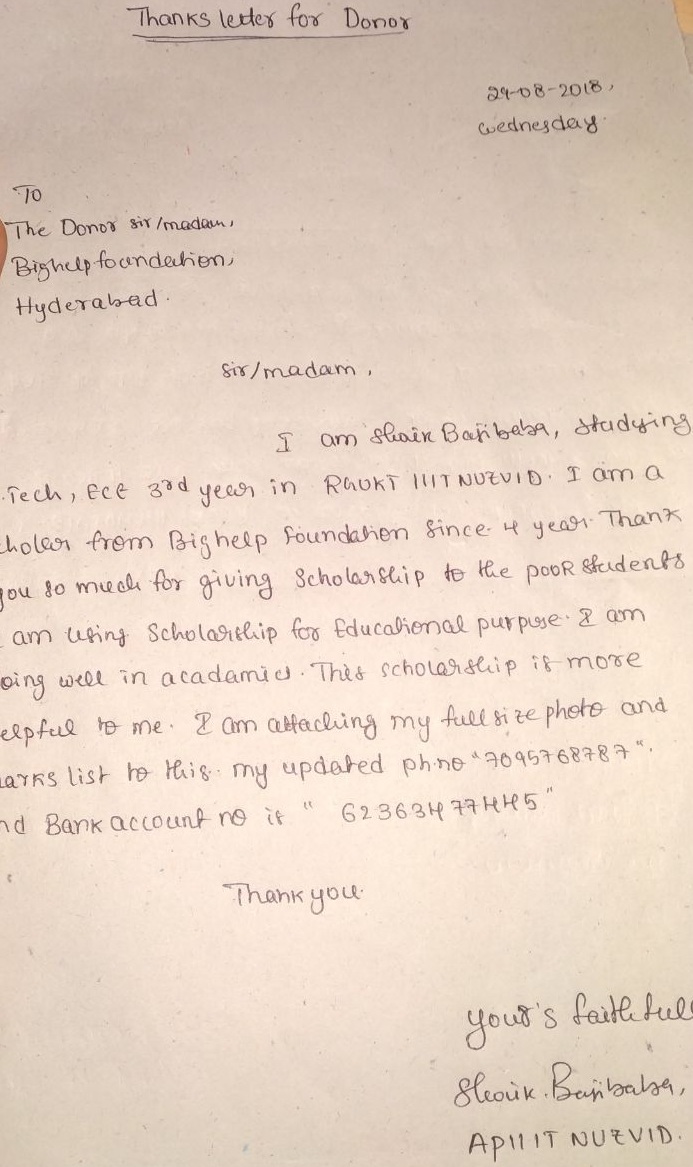 Thanks letter for Donor
29-08-2018,
wednesday.
To
The Donor sir/madam,
Bighelp foundation,
Hyderabad.
sir/madam,
I am Shaik Bajibaba, studying
.Tech, ECE 3rd year in RGUKT IIIT NUZVID. I am a
cholar from Bighelp foundation since 4 year. Thank
you so much for giving Scholarship to the pooR students
am using Scholarship for Educational purpose. I am
oing well in acadamics. This scholarship is more
elpful to me. I am attaching my full size photo and
arks list to this. my updated ph.no "7095768787".
nd Bank account no is " 62363477445"
Thank you.
your's faithful
Shaik. Bajibaba,
APIIIT NUZVID.